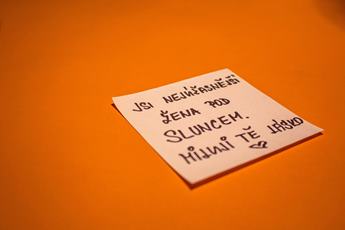 JSI NEJÚŽASNĚJŠÍ
ŽENA POD
SLUNCEM.
MILUJI TĚ LÁSKO